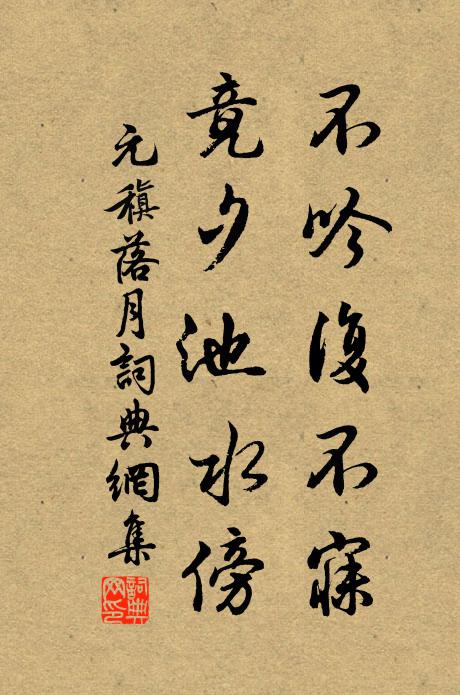 不吟復不寐
竟夕池水傍
元稹落月詞典網集
詞典網印